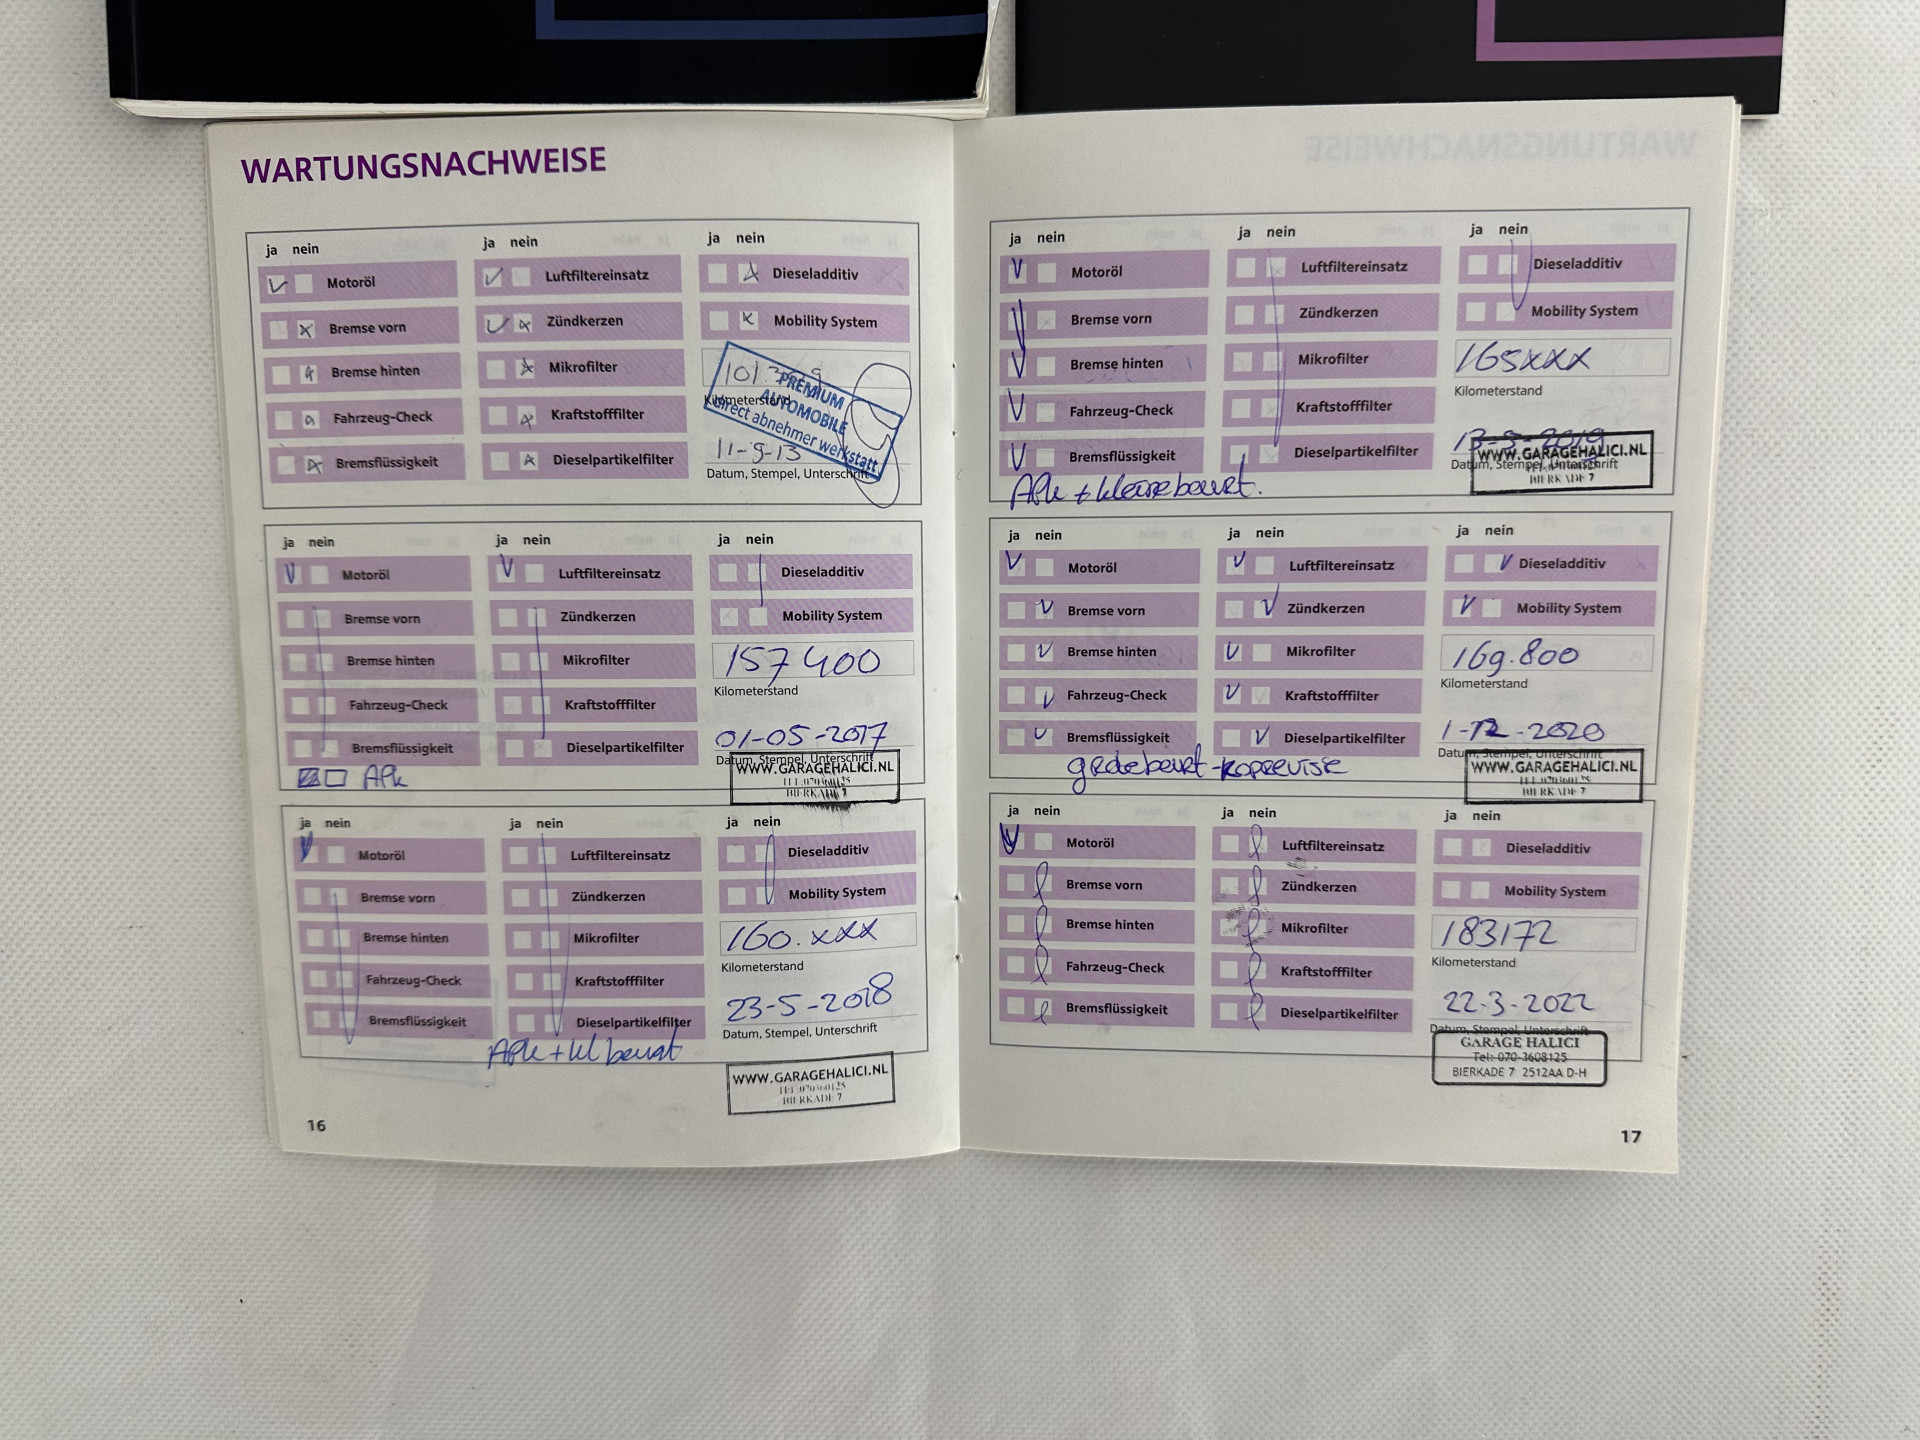 WARTUNGSNACHWEISE
ja nein
Motoröl
Bremse vorn
Bremse hinten
Fahrzeug-Check
Bremsflüssigkeit
ja nein
Luftfiltereinsatz
Zündkerzen
Mikrofilter
Kraftstofffilter
Dieselpartikelfilter
ja nein
Dieseladditiv
Mobility System
Kilometerstand
PREMIUM
AUTOMOBILE
direct abnehmer werkstatt
11-9-13
Datum, Stempel, Unterschrift
ja nein
Motoröl
Bremse vorn
Bremse hinten
Fahrzeug-Check
Bremsflüssigkeit
APk
ja nein
Luftfiltereinsatz
Zündkerzen
Mikrofilter
Kraftstofffilter
Dieselpartikelfilter
ja nein
Dieseladditiv
Mobility System
157400
Kilometerstand
01-05-2017
Datum, Stempel, Unterschrift
WWW.GARAGEHALICI.NL
BIERKADE 7
ja nein
Motoröl
Bremse vorn
Bremse hinten
Fahrzeug-Check
Bremsflüssigkeit
ja nein
Luftfiltereinsatz
Zündkerzen
Mikrofilter
Kraftstofffilter
Dieselpartikelfilter
APk + kl beurt
ja nein
Dieseladditiv
Mobility System
160.xxx
Kilometerstand
23-5-2018
Datum, Stempel, Unterschrift
WWW.GARAGEHALICI.NL
BIERKADE 7
16
ja nein
Motoröl
Bremse vorn
Bremse hinten
Fahrzeug-Check
Bremsflüssigkeit
APk + kleine beurt.
ja nein
Luftfiltereinsatz
Zündkerzen
Mikrofilter
Kraftstofffilter
Dieselpartikelfilter
ja nein
Dieseladditiv
Mobility System
165xxx
Kilometerstand
13-9-2019
Datum, Stempel, Unterschrift
WWW.GARAGEHALICI.NL
BIERKADE 7
ja nein
Motoröl
Bremse vorn
Bremse hinten
Fahrzeug-Check
Bremsflüssigkeit
ja nein
Luftfiltereinsatz
Zündkerzen
Mikrofilter
Kraftstofffilter
Dieselpartikelfilter
grote beurt - koprevisie
ja nein
Dieseladditiv
Mobility System
169.800
Kilometerstand
1-12-2020
Datum, Stempel, Unterschrift
WWW.GARAGEHALICI.NL
BIERKADE 7
ja nein
Motoröl
Bremse vorn
Bremse hinten
Fahrzeug-Check
Bremsflüssigkeit
ja nein
Luftfiltereinsatz
Zündkerzen
Mikrofilter
Kraftstofffilter
Dieselpartikelfilter
ja nein
Dieseladditiv
Mobility System
183172
Kilometerstand
22-3-2022
Datum, Stempel, Unterschrift
GARAGE HALICI
Tel: 070-3608125
BIERKADE 7 2512AA D-H
17